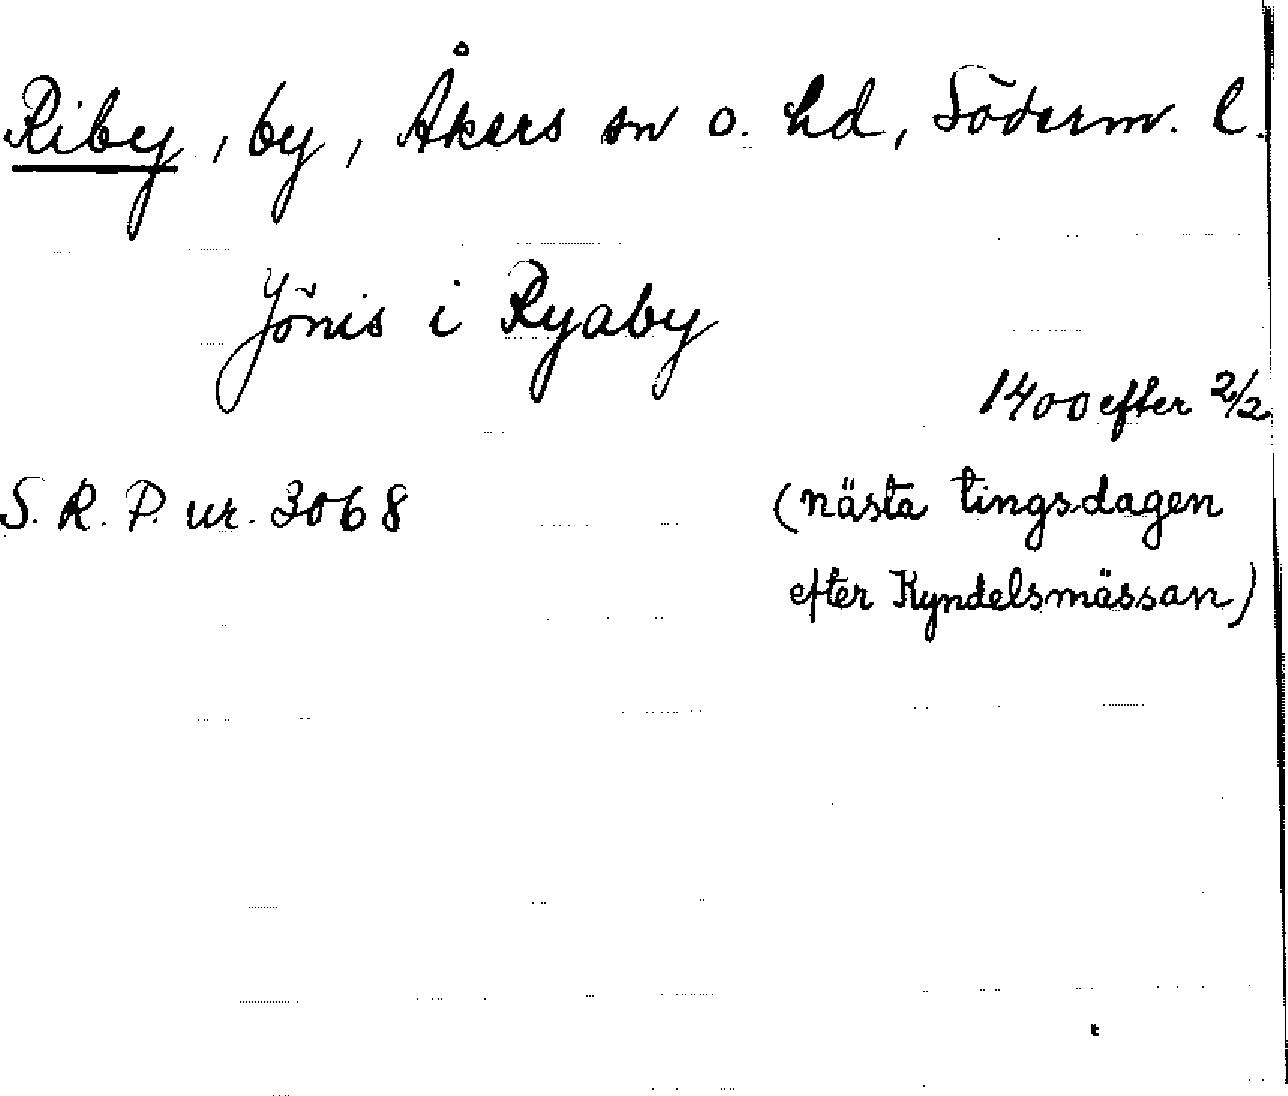 Riby, by, Åkers sn o. hd, Söderm. l.
Jönis i Ryaby
1400 efter 2/2
S. R. P. nr. 3068
(nästa tingsdagen
efter Kyndelsmässan)